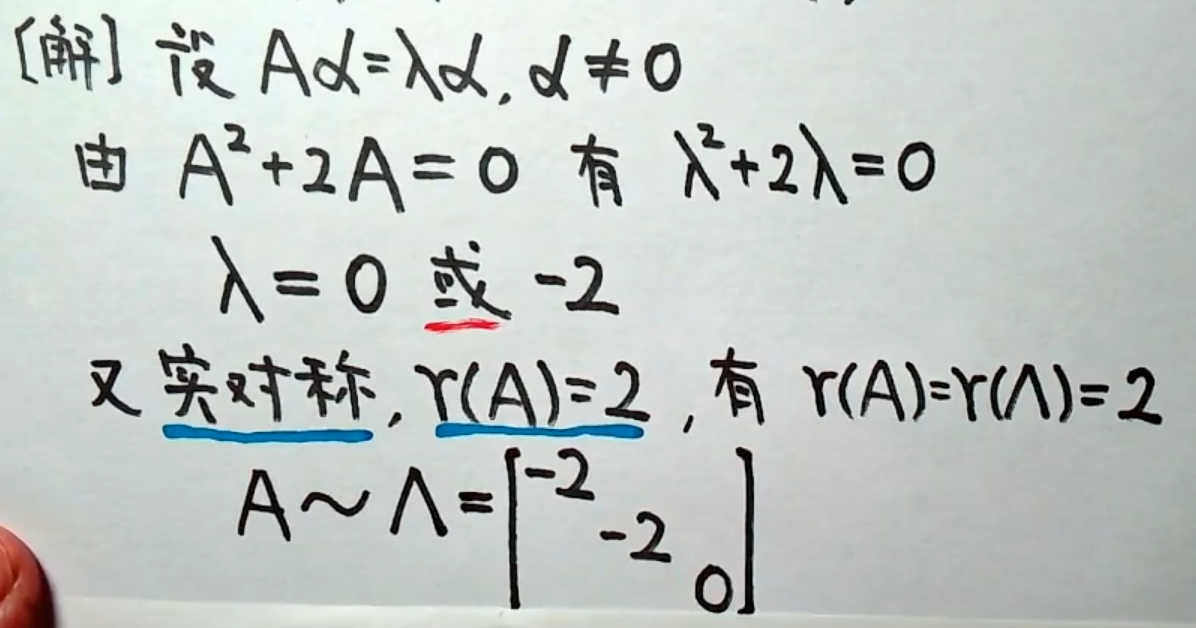 [解] 设 Aα=λα, α≠0
由 A²+2A=0 有 λ²+2λ=0
λ=0 或 -2
又实对称, r(A)=2, 有 r(A)=r(Λ)=2
A~Λ=[-2 -2 0]